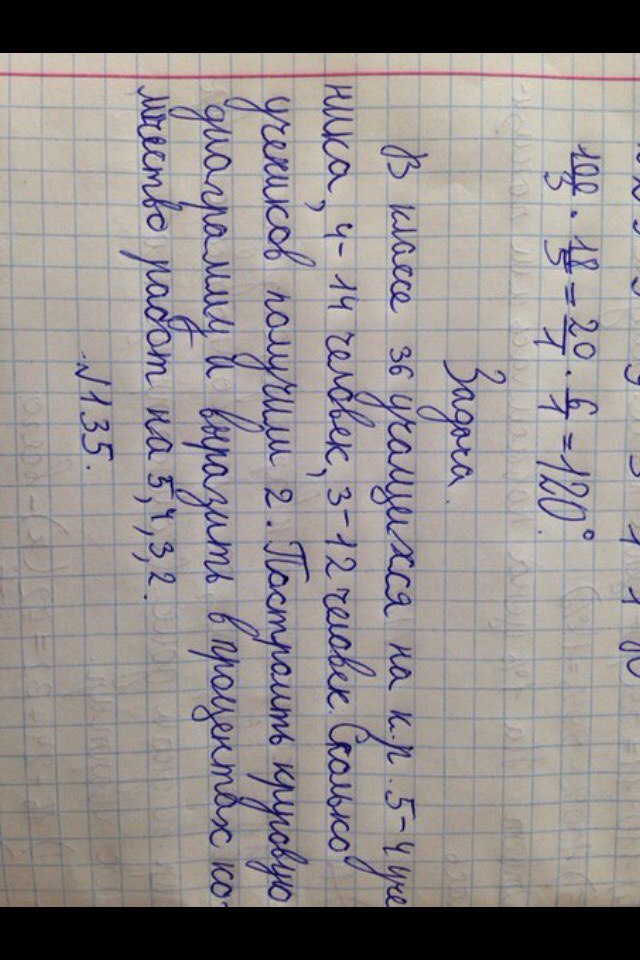 100/3 · 18/5 = 20/1 · 6/1 = 120°.
Задача.
В классе 36 учащихся на к.р. 5-4 уче
ника, 4-14 человек, 3-12 человек. Сколько
учеников получили 2. Построить круговую
диаграмму и выразить в процентах ко-
личество работ на 5, 4, 3, 2.
№135.